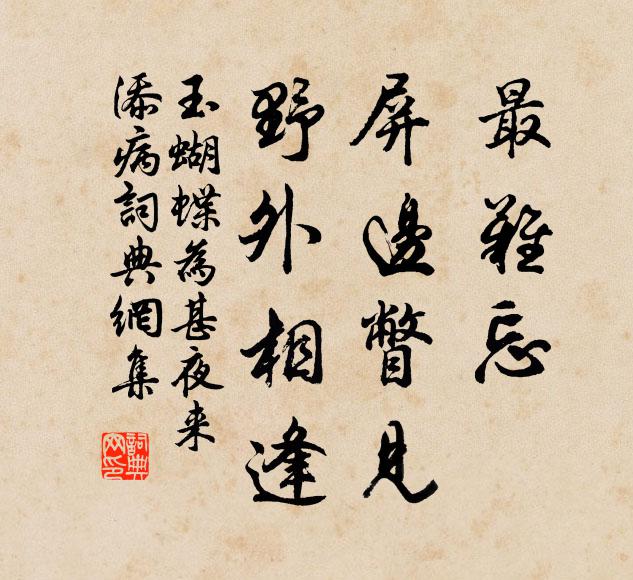 最難忘
屏邊瞥見
野外相逢
玉蝴蝶為甚夜来
添病詞典網集
詞典
网印